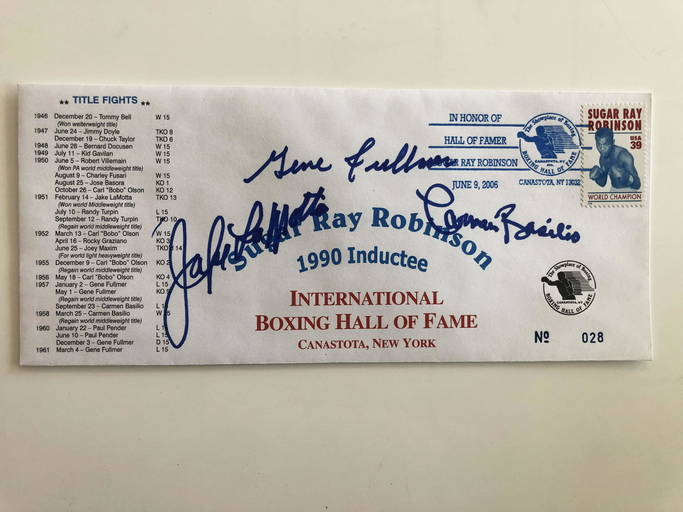 ★★ TITLE FIGHTS ★★
1946 December 20 – Tommy Bell W 15
(Won welterweight title)
1947 June 24 – Jimmy Doyle TKO 8
December 19 – Chuck Taylor TKO 6
1948 June 28 – Bernard Docusen W 15
1949 July 11 – Kid Gavilan W 15
1950 June 5 – Robert Villemain W 15
(Won PA world middleweight title)
August 9 – Charley Fusari W 15
August 25 – Jose Basora KO 1
October 26 – Carl "Bobo" Olson KO 12
1951 February 14 – Jake LaMotta TKO 13
(Won world Middleweight title)
July 10 – Randy Turpin L 15
September 12 – Randy Turpin TKO 10
(Regain world middleweight title)
1952 March 13 – Carl "Bobo" Olson W 15
April 16 – Rocky Graziano KO 3
June 25 – Joey Maxim TKO 14
(For world light heavyweight title)
1955 December 9 – Carl "Bobo" Olson KO 2
(Regain world middleweight title)
1956 May 18 – Carl "Bobo" Olson KO 4
1957 January 2 – Gene Fullmer L 15
May 1 – Gene Fullmer KO
(Regain world middleweight title)
September 23 – Carmen Basilio L 15
1958 March 25 – Carmen Basilio W 15
(Regain world middleweight title)
1960 January 22 – Paul Pender L 15
June 10 – Paul Pender L 15
December 3 – Gene Fullmer D 15
1961 March 4 – Gene Fullmer L 15
Gene Fullmer
Jake LaMotta
Carmen Basilio
Sugar Ray Robinson
1990 Inductee
INTERNATIONAL
BOXING HALL OF FAME
CANASTOTA, NEW YORK
IN HONOR OF
HALL OF FAMER
SUGAR RAY ROBINSON
JUNE 9, 2006
The Showplace of Boxing
CANASTOTA, NY
BOXING HALL OF FAME
CANASTOTA, NY 13032
SUGAR RAY
ROBINSON
USA
39
WORLD CHAMPION
The Showplace of Boxing
CANASTOTA, NY
BOXING HALL OF FAME
Nº 028